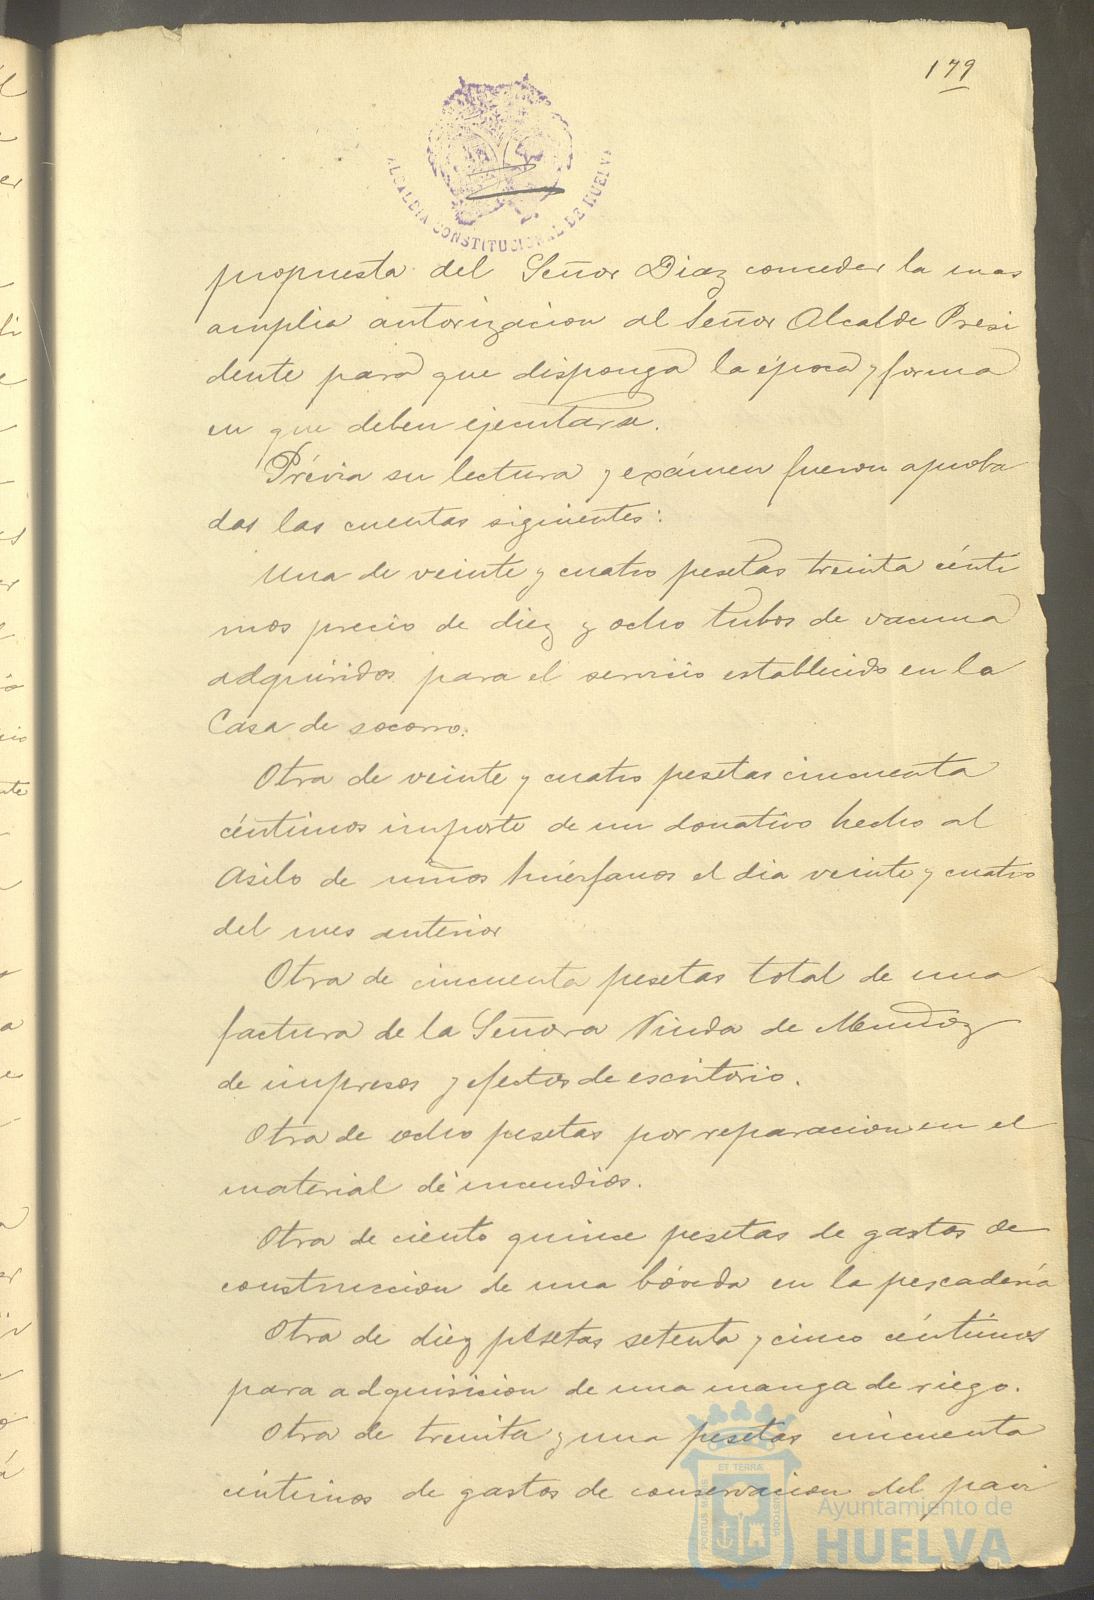 179
ALCALDIA CONSTITUCIONAL DE HUELVA
propuesta del Señor Diaz conceder la mas
amplia autorizacion al Señor Alcalde Presi
dente para que disponga la época y forma
en que deben ejecutarse.
Prévia su lectura y exámen fueron aproba
das las cuentas siguientes:
Una de veinte y cuatro pesetas treinta cénti
mos precio de diez y ocho tubos de vacuna
adquiridos para el servicio establecido en la
Casa de socorro.
Otra de veinte y cuatro pesetas cincuenta
céntimos importe de un donativo hecho al
Asilo de niños huérfanos el dia veinte y cuatro
del mes anterior
Otra de cincuenta pesetas total de una
factura de la Señora Viuda de Muñoz
de impresos y efectos de escritorio.
Otra de ocho pesetas por reparacion en el
material de incendios.
Otra de ciento quince pesetas de gastos de
construccion de una bóveda en la pescadería
Otra de diez pesetas setenta y cinco céntimos
para adquisicion de una manga de riego.
Otra de treinta y una pesetas cincuenta
céntimos de gastos de conservacion del pavi
ET TERRAE
PORTUS MARIS
CUSTODIA
Ayuntamiento de
HUELVA